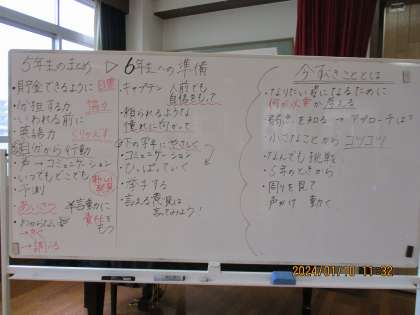 5年生のまとめ ▷
・貯金できるように 目標
・分担する力 協力
・いわれる前に
・英語力 くりかえす
・自分から行動
・声→コミュニケーション
・いつもどこでも
・予測
・あいさつ
・わからない
→調べる
・言動に責任をもつ
6年生への準備
・キャプテン 人前でも
自信をもって
・頼られるような
憧れに向かって
・下の学年に やさしく
・コミュニケーション
・ひっぱっていく
・学習する
・言える意見は
言ってみよう!
今すべきこととは
・なりたい姿になるために
何が必要か考える
・弱さを知る → アプローチは?
・小さなことから コツコツ
・なんでも挑戦
・5年のときから
・周りを見て
声かけ 動く
2024/01/10 11:32